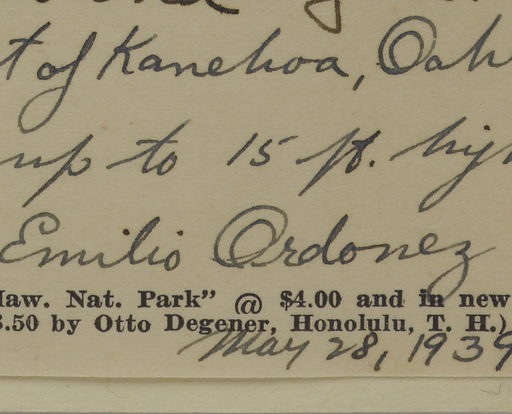 t of Kanehoa, Oah
up to 15 ft. high
Emilio Ordonez
Haw. Nat. Park” @ $4.00 and in new
3.50 by Otto Degener, Honolulu, T. H.)
May 28, 1939